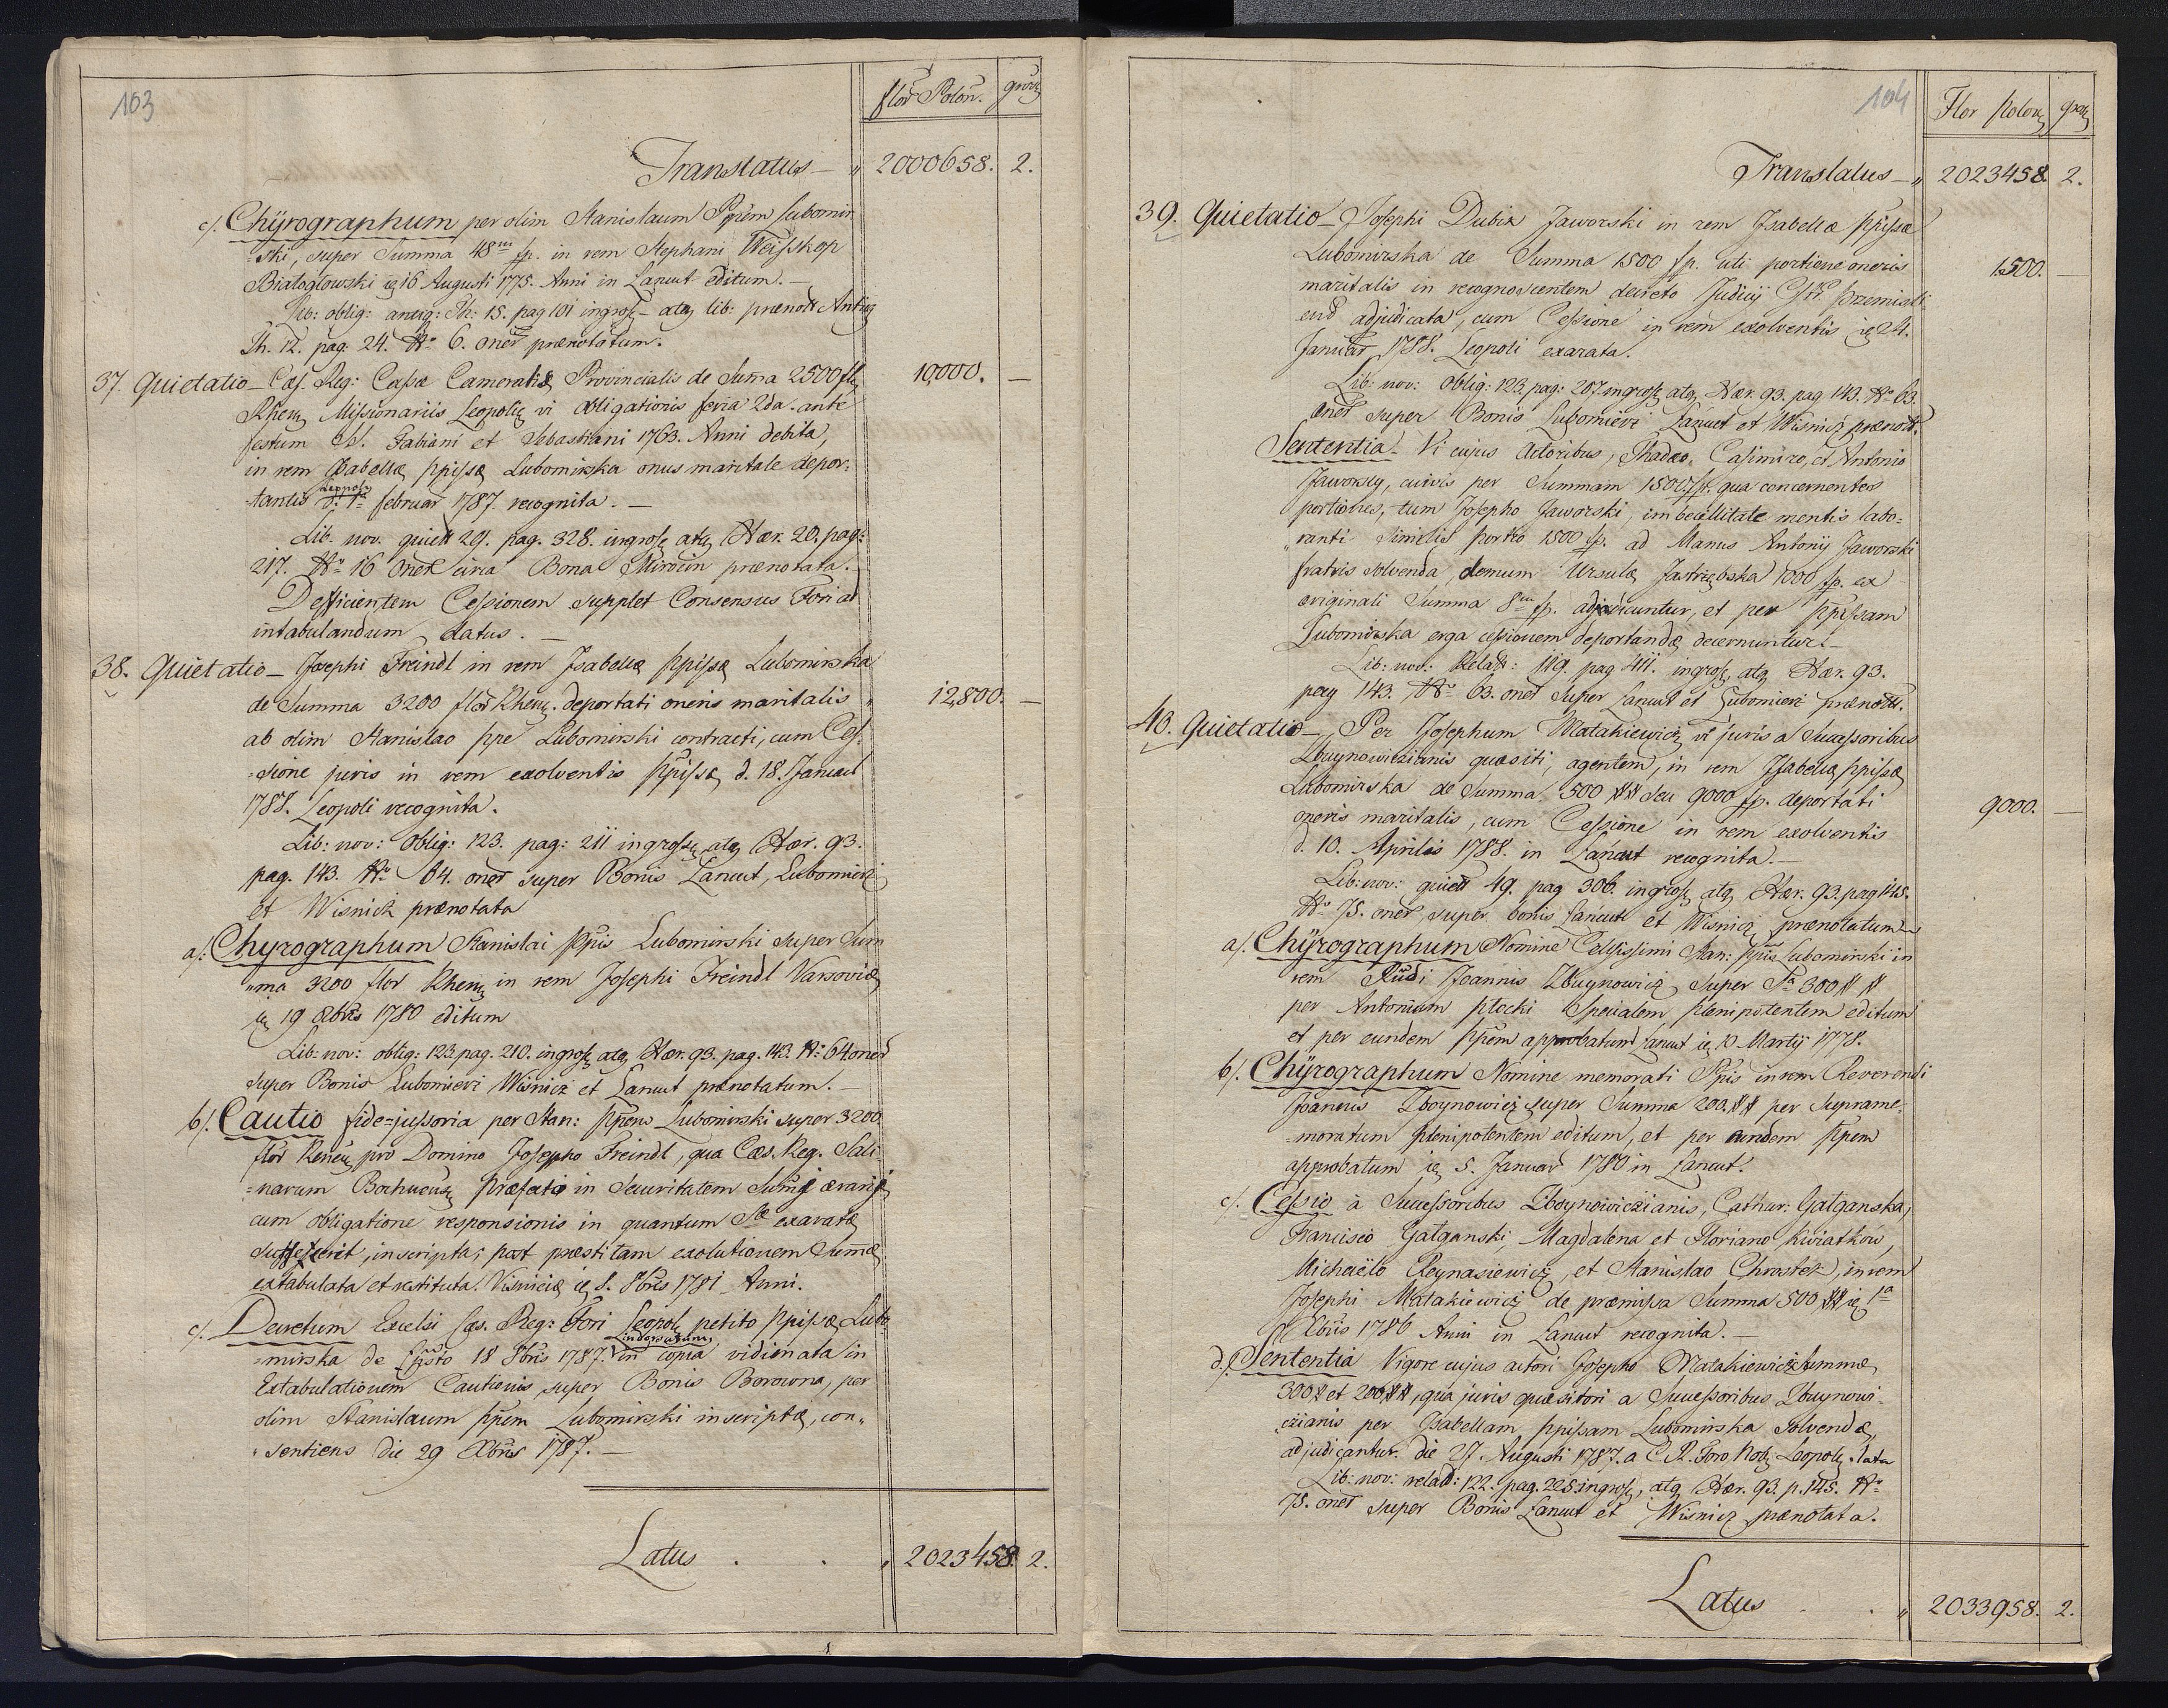 103
flor Polon. gros
Translatus — „ 2000658. 2.
c/. Chÿrographum per olim Stanislaum Ppem Lubomir
-ski, super Summa 48m fp. in rem Stephani Weisskop
Białogłowski 16 Augusti 1775. Anni in Lancut editum. —
Lib: oblig: antiq: Th: 15. pag 101 ingros — atq lib: prænott Antiq
Th. 12. pag: 24. No 6. oner prænotatum.
37. Quietatio — Cæs. Reg: Cassæ Cameralis Provincialis de Suma 2500 fl 10,000. —
Rhen Missionariis Leopoli vi obligationis feria 2da. ante
festum SS. Fabiani et Sebastiani 1763. Anni debita,
in rem Isabellæ Ppissæ Lubomirska onus maritale depor-
-tantis Leopoli d: 1a februar 1787. recognita. —
Lib. nov. quiett 29. pag. 328. ingros atq Hær. 20. pag:
217. No 16 oner circa Bona Mirocin prænotata. —
Defficientem Cessionem supplet Consensus Fori ad
intabulandum datus. —
38. Quietatio — Josephi Freindl in rem Isabellæ Ppissæ Lubomirska
de Summa 3200 flor Rhen. deportati oneris maritalis „ 12,800. —
ab olim Stanislao ppe Lubomirski contracti, cum Ces-
-sione juris in rem exolventis Ppissæ d. 18. Januar
1788. Leopoli recognita.
Lib: nov: oblig: 123. pag: 211 ingros atq Hær. 93.
pag. 143. No 64. oner super Bonis Lancut, Lubomierz
et Wisnicz prænotata
a/. Chyrographum Stanislai Ppis Lubomirski super Sum
-ma 3200 flor Rhen in rem Josephi Freindl Varsoviæ
19 Xbris 1780 editum
Lib: nov: oblig: 123. pag. 210. ingros atq Hær. 93. pag. 143. No 64 oner
super Bonis Lubomierz Wisnicz et Lancut prænotatum. —
b/. Cautio fide=jussoria per Stan: Ppem Lubomirski super 3200.
flor Rhen pro Domino Josepho Freindl, qua Cæs. Reg. Sali-
-narum Bochnens Præfecto in Securitatem Sumi ærarij
cum obligatione responsionis in quantum exaratæ
inscripta, post præstitam exolutionem Sumæ
extabulata et restituta. Visniciæ 8bris 1781 Anni.
c/. Decretum Excelsi Cæs. Reg: Fori Leopol petito Ppissæ Lubo-
-mirska de 18 8bris 1787. Indorsatum in copia vidimata in
Extabulationem Cautionis super Bonis Borowna, per
olim Stanislaum Ppem Lubomirski inscriptæ, con-
-sentiens die 29 Xbris 1787. —
Latus . . „ 2023458. 2.
104
Flor Polon gros
Translatus — „ 2023458. 2.
39. Quietatio — Josephi Dubik Jaworski in rem Isabellæ Ppissæ
Lubomirska de Summa 1500 fp. uti portione oneris 1500. —
maritalis in recognoscentem decreto Judicij Premisli
end adjudicata, cum Cessione in rem exolventis 24.
Januar 1788. Leopoli exarata.
Lib: nov: oblig: 123. pag: 207 ingros atq Hær. 93. pag 143. No 63.
oner super Bonis Lubomierz Lancut et Wisnicz prænott.
Sententia — Vi cujus Actoribus, Thadæo, Casimiro, et Antonio
Jaworski, cuivis per Summam 1500 fp. qua concernentes
portiones, tum Josepho Jaworski, imbecillitate mentis labo-
-ranti similis portio 1500 fp. ad Manus Antonij Jaworski
fratris solvenda, demum Ursulæ Jastrzębska 1000 fp. ex
originali Summa 8m fp. adjudicuntur, et per Ppissam
Lubomirska erga cessionem deportandæ decernuntur. —
Lib: nov: Relat: 119. pag 411. ingros atq Hær. 93.
pag 143. No 63. oner super Lancut et Lubomierz prænott.
40. Quietatio — Per Josephum Matakiewicz vi juris a Successoribus
Zbuynowiczianis quæsiti, agentem, in rem Isabellæ Ppissæ
Lubomirska de Summa 500 ## seu 9000 fp. deportati 9000. —
oneris maritalis, cum Cessione in rem exolventis
d. 10. Aprilis 1788. in Lancut recognita. —
Lib: nov: quiett 49. pag 306. ingros atq Hær. 93. pag 145.
No 75. oner super bonis Lancut et Wisnicz prænotatum
a/. Chÿrographum Nomine Celsissimi Stan: Ppis Lubomirski in
rem Rudi Joannis Zbuynowicz super Sa 300 ##
per Antonium Plocki Specialem plenipotentem editum
et per eundem Ppem approbatum Lancut 10 Martij 1778.
b/. Chÿrographum Nomine memorati Ppis in rem Reverendi
Joannis Zboynowicz super Summa 200 ## per Suprame-
-moratum plenipotentem editum, et per eundem Ppem
approbatum 5. Januar 1780 in Lancut.
c/. Cessio à Successoribus Zboynowiczianis, Cathar: Galganska,
Francisco Galganski, Magdalena et Floriano Kwiatkow,
Michaële Reynasiewicz, et Stanislao Chrostek, in rem
Josephi Matakiewicz de præmissa Summa 500 ## 1a
Xbris 1786 Anni in Lancut recognita. —
d. Sententia Vigore cujus actori Josepho Matakiewicz Summæ
300 # et 200 ##, qua juris quæsitori a Successoribus Zbuynowi-
cziianis per Isabellam Ppissam Lubomirska solvendæ,
adjudicantur. die 27. Augusti 1787. a C. R. Foro Nob. Leopol. lata
Lib: nov: relat: 122. pag. 225. ingros, atq Hær. 93. p. 145. No
75. oner super Bonis Lancut et Wisnicz prænotata.
Latus . . „ 2033958. 2.